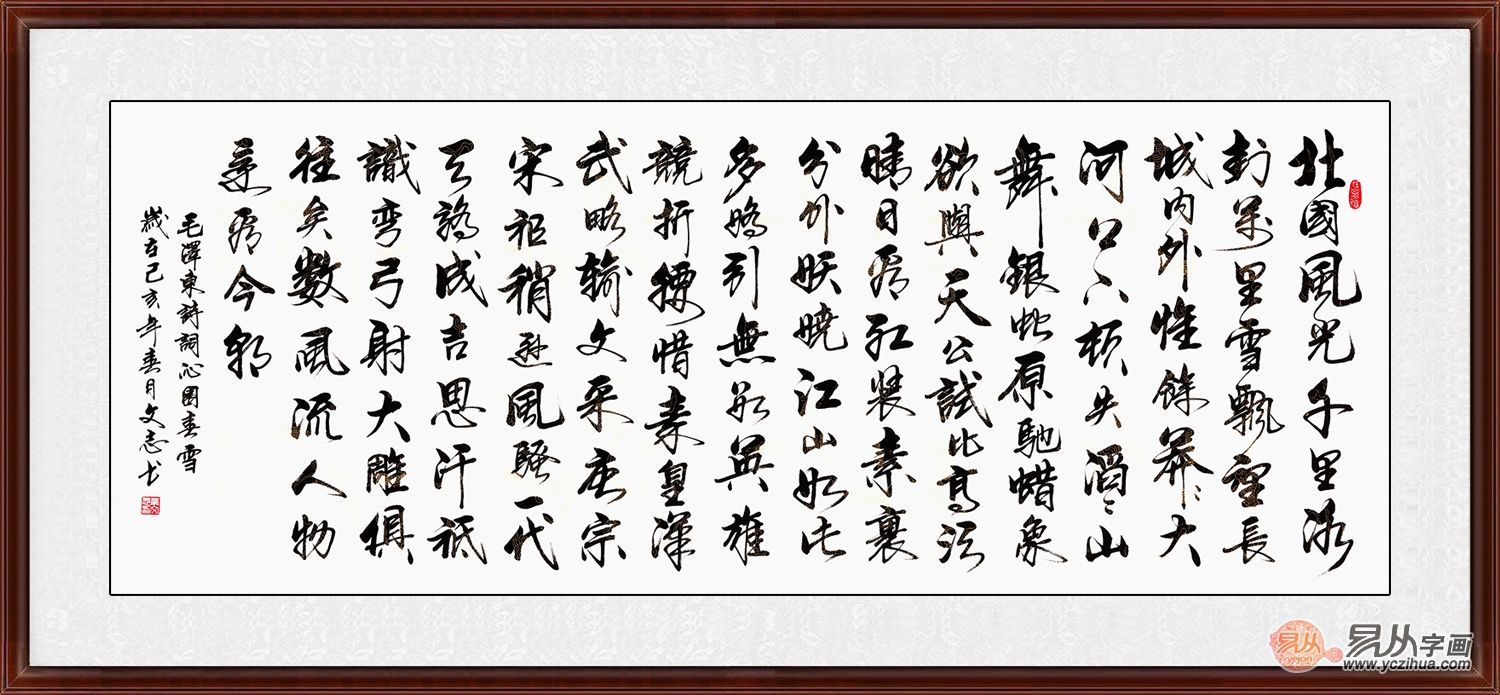 北國風光千里冰
封萬里雪飄望長
城内外惟餘莽〻大
河上下頓失滔〻山
舞銀蛇原馳蜡象
欲與天公試比高須
晴日看红装素裹
分外妖嬈江山如此
多嬌引無數英雄
競折腰惜秦皇漢
武略輸文采唐宗
宋祖稍遜風騷一代
天驕成吉思汗祗
識弯弓射大雕俱
往矣數風流人物
還看今朝
毛澤東詩詞沁園春雪
歲在己亥年春月文志书
易从
易从字画
www.yczihua.com